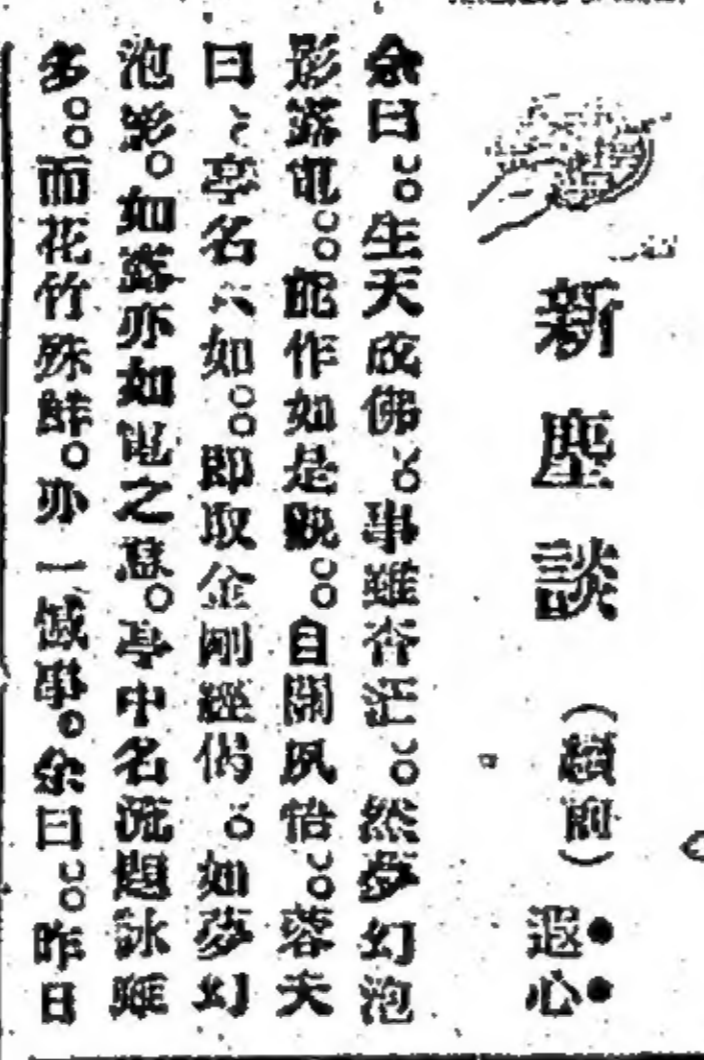 新塵談（續前）遐心
余曰。生天成佛。事雖杳茫。然夢幻泡
影露電。能作如是觀。自關夙怡。蓉夫
曰。亭名六如。即取金剛經偈。如夢幻
泡影。如露亦如電之意。亭中名流題詠雖
多。而花竹殊鮮。亦一憾事。余曰。昨日